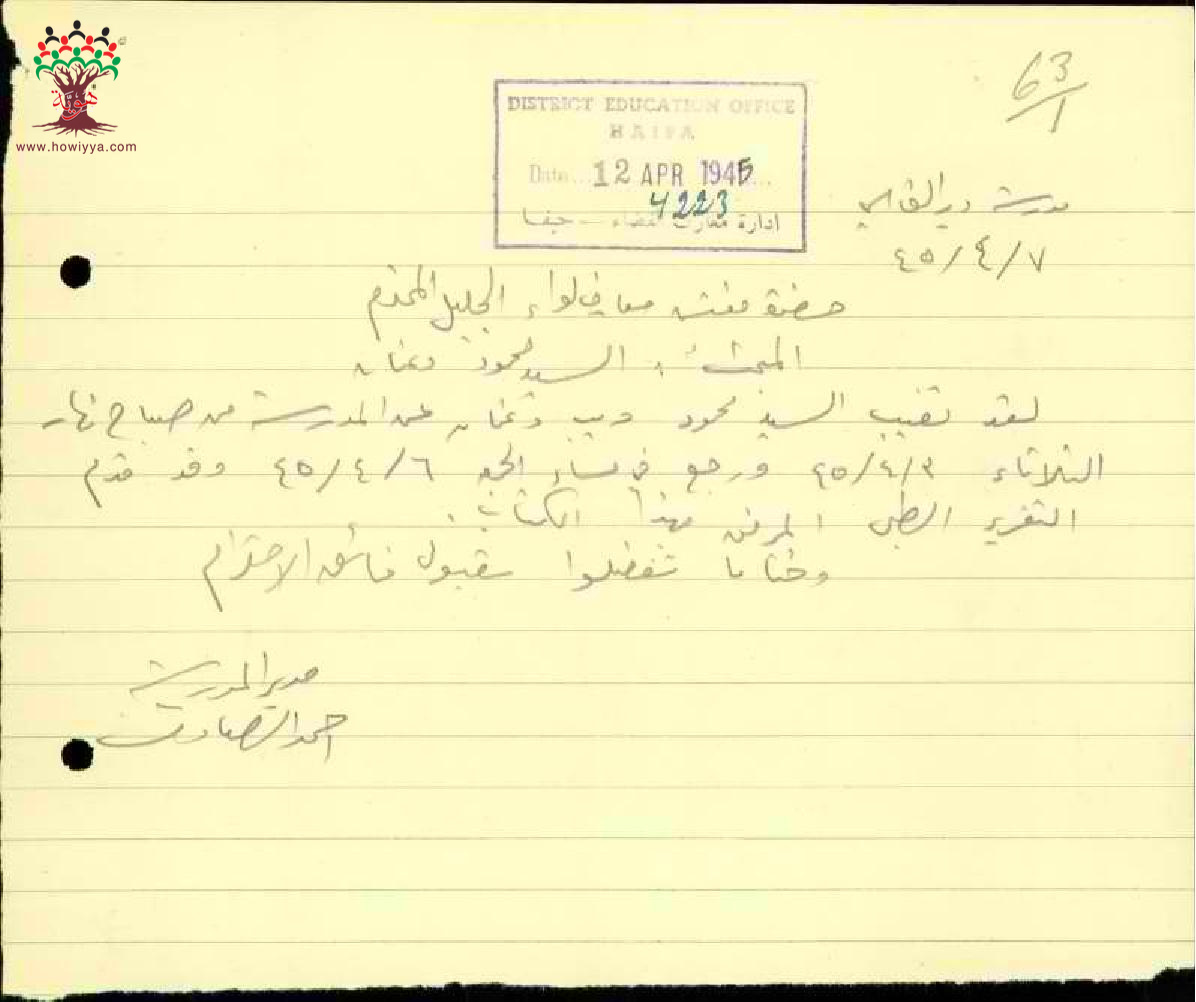 هوية
www.howiyya.com
63/1
DISTRICT EDUCATION OFFICE
HAIFA
Date... 12 APR 1945...
4223
ادارة معارف القضاء – حيفا
مدرسة دير القاسي
٤٥/٤/٧
حضرة مفتش معارف لواء الجليل المحترم
المبحث : السيد محمود دغمان
لقد تغيب السيد محمود ديب دغمان عن المدرسة من صباح نهار
الثلاثاء ٤٥/٤/٣ ورجع في مساء الجمعة ٤٥/٤/٦ وقد قدم
التقرير الطبي المرفق بهذا الكتاب .
وختاما تفضلوا بقبول فائق الاحترام
مدير المدرسة
احمد